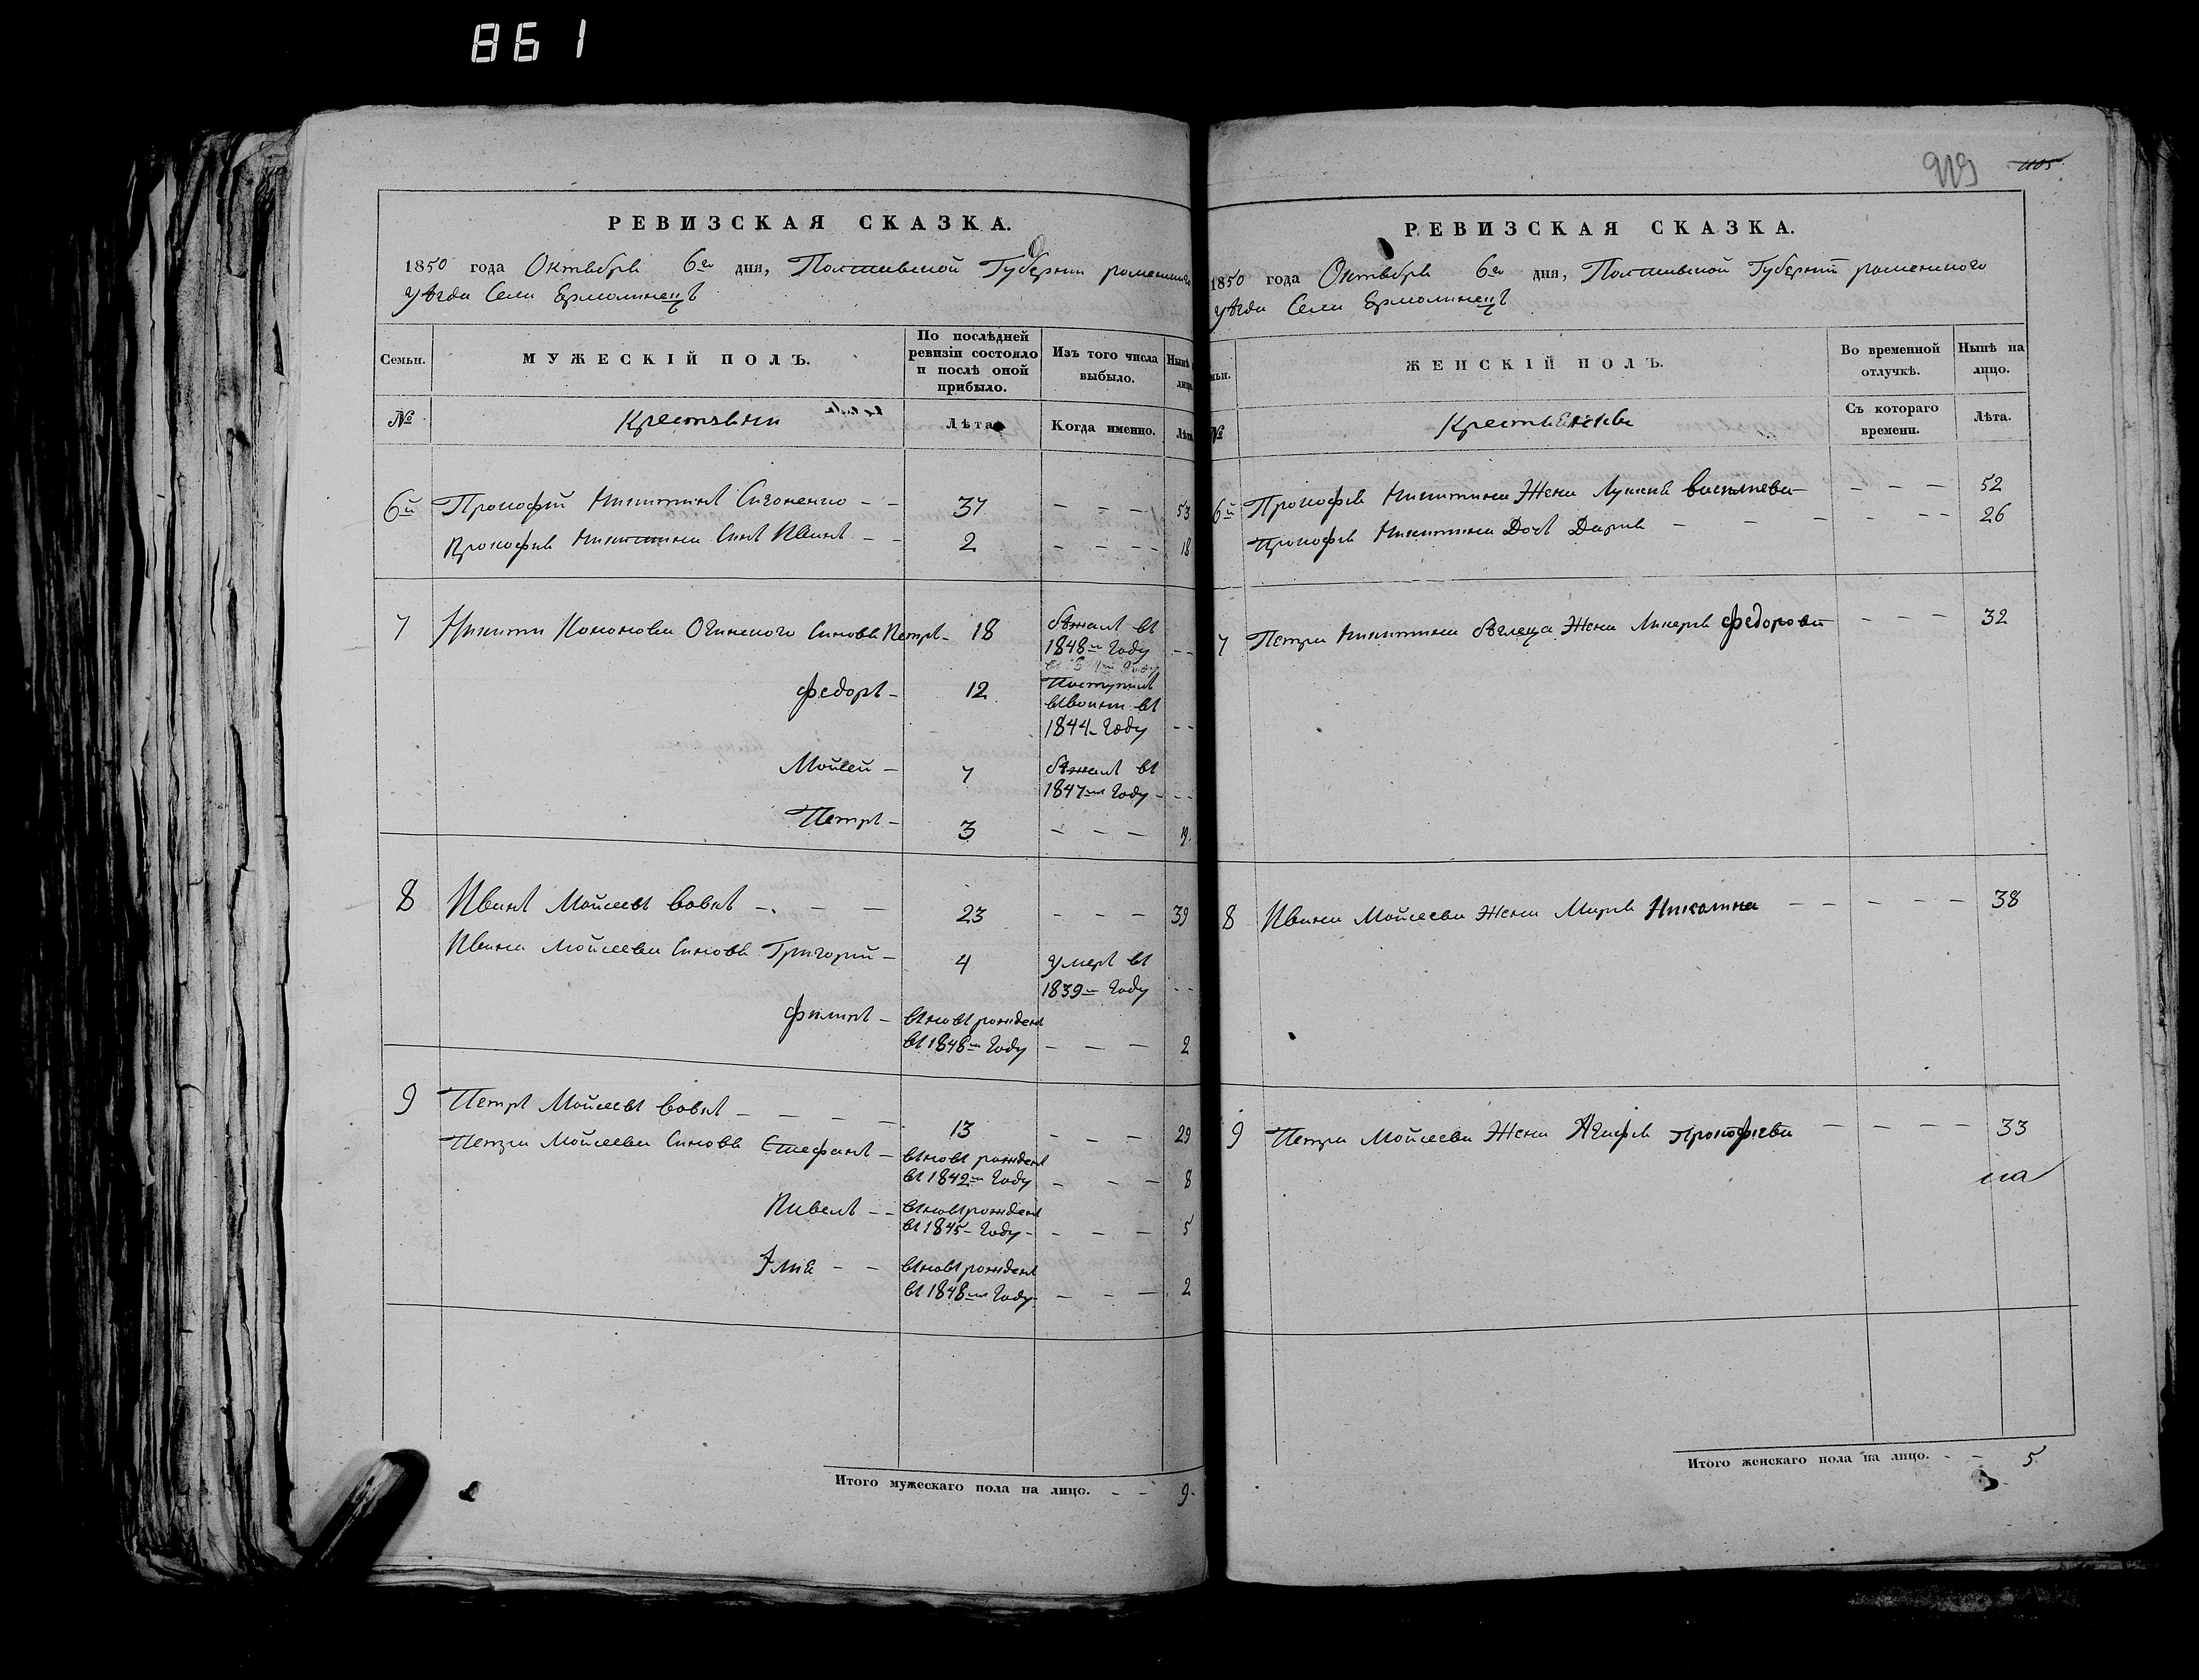 861
РЕВИЗСКАЯ СКАЗКА.
1850 года Октября 6го дня, Полтавской Губернии роменского
уѣзда Села Ермолинецъ
Семьи.
МУЖЕСКІЙ ПОЛЪ.
По послѣдней
ревизіи состояло
и послѣ оной
прибыло.
Изъ того числа
выбыло.
Нынѣ
лицо.
№
Крестьяни
Лѣта.
Когда именно.
Лѣта
6й Прокофій Никитинъ – – 37 – – – 53
Прокофія Никитина Синъ Иванъ – – 2 – – – – 18
7 Никити Кононова Синовья Петръ – 18 бѣжалъ въ
1848м Году – –
федоръ – 12 Поступилъ
въ
1844 Году – –
Мойсей – 7 бѣжалъ въ
1847мъ Году – – –
Петръ – 3 – – – 19
8 Иванъ Мойсеевъ вовкъ – – – 23 – – – 39
Ивана Мойсеева Синовья Григорій – 4 умеръ въ
1839м Году – –
филипъ – вновь рожденъ
въ 1848м Году – – – 2
9 Петръ Мойсеевъ вовкъ – – – – – 13 – – – 29
Петра Мойсеева Синовья Стефанъ – вновь рожденъ
въ 1842м Году – – – 8
Павелъ – – вновь рожденъ
въ 1845 Году – – – – 5
Илия – – вновь рожденъ
въ 1848мъ Году – – – 2
Итого мужескаго пола на лицо. – – 9.
919 1105
РЕВИЗСКАЯ СКАЗКА.
1850 года Октября 6го дня, Полтавской Губерніи роменского
уѣзда Села Ермолинецъ
ЖЕНСКІЙ ПОЛЪ.
Во временной
отлучкѣ.
Нынѣ на
лицо.
№
Съ котораго
времени.
Лѣта.
6й Прокофія Никитина Жена Лукия васильева – – – – 52
Прокофія Никитина Дочъ Дария – – – – – – 26
7 Петра Никитина бѣглеца Жена федорова – – – 32
8 Ивана Мойсеева Жена Мария – – – – – 38
9 Петра Мойсеева Жена Агафия прокофіева – – – – 33
на
Итого женскаго пола на лицо. – – 5.